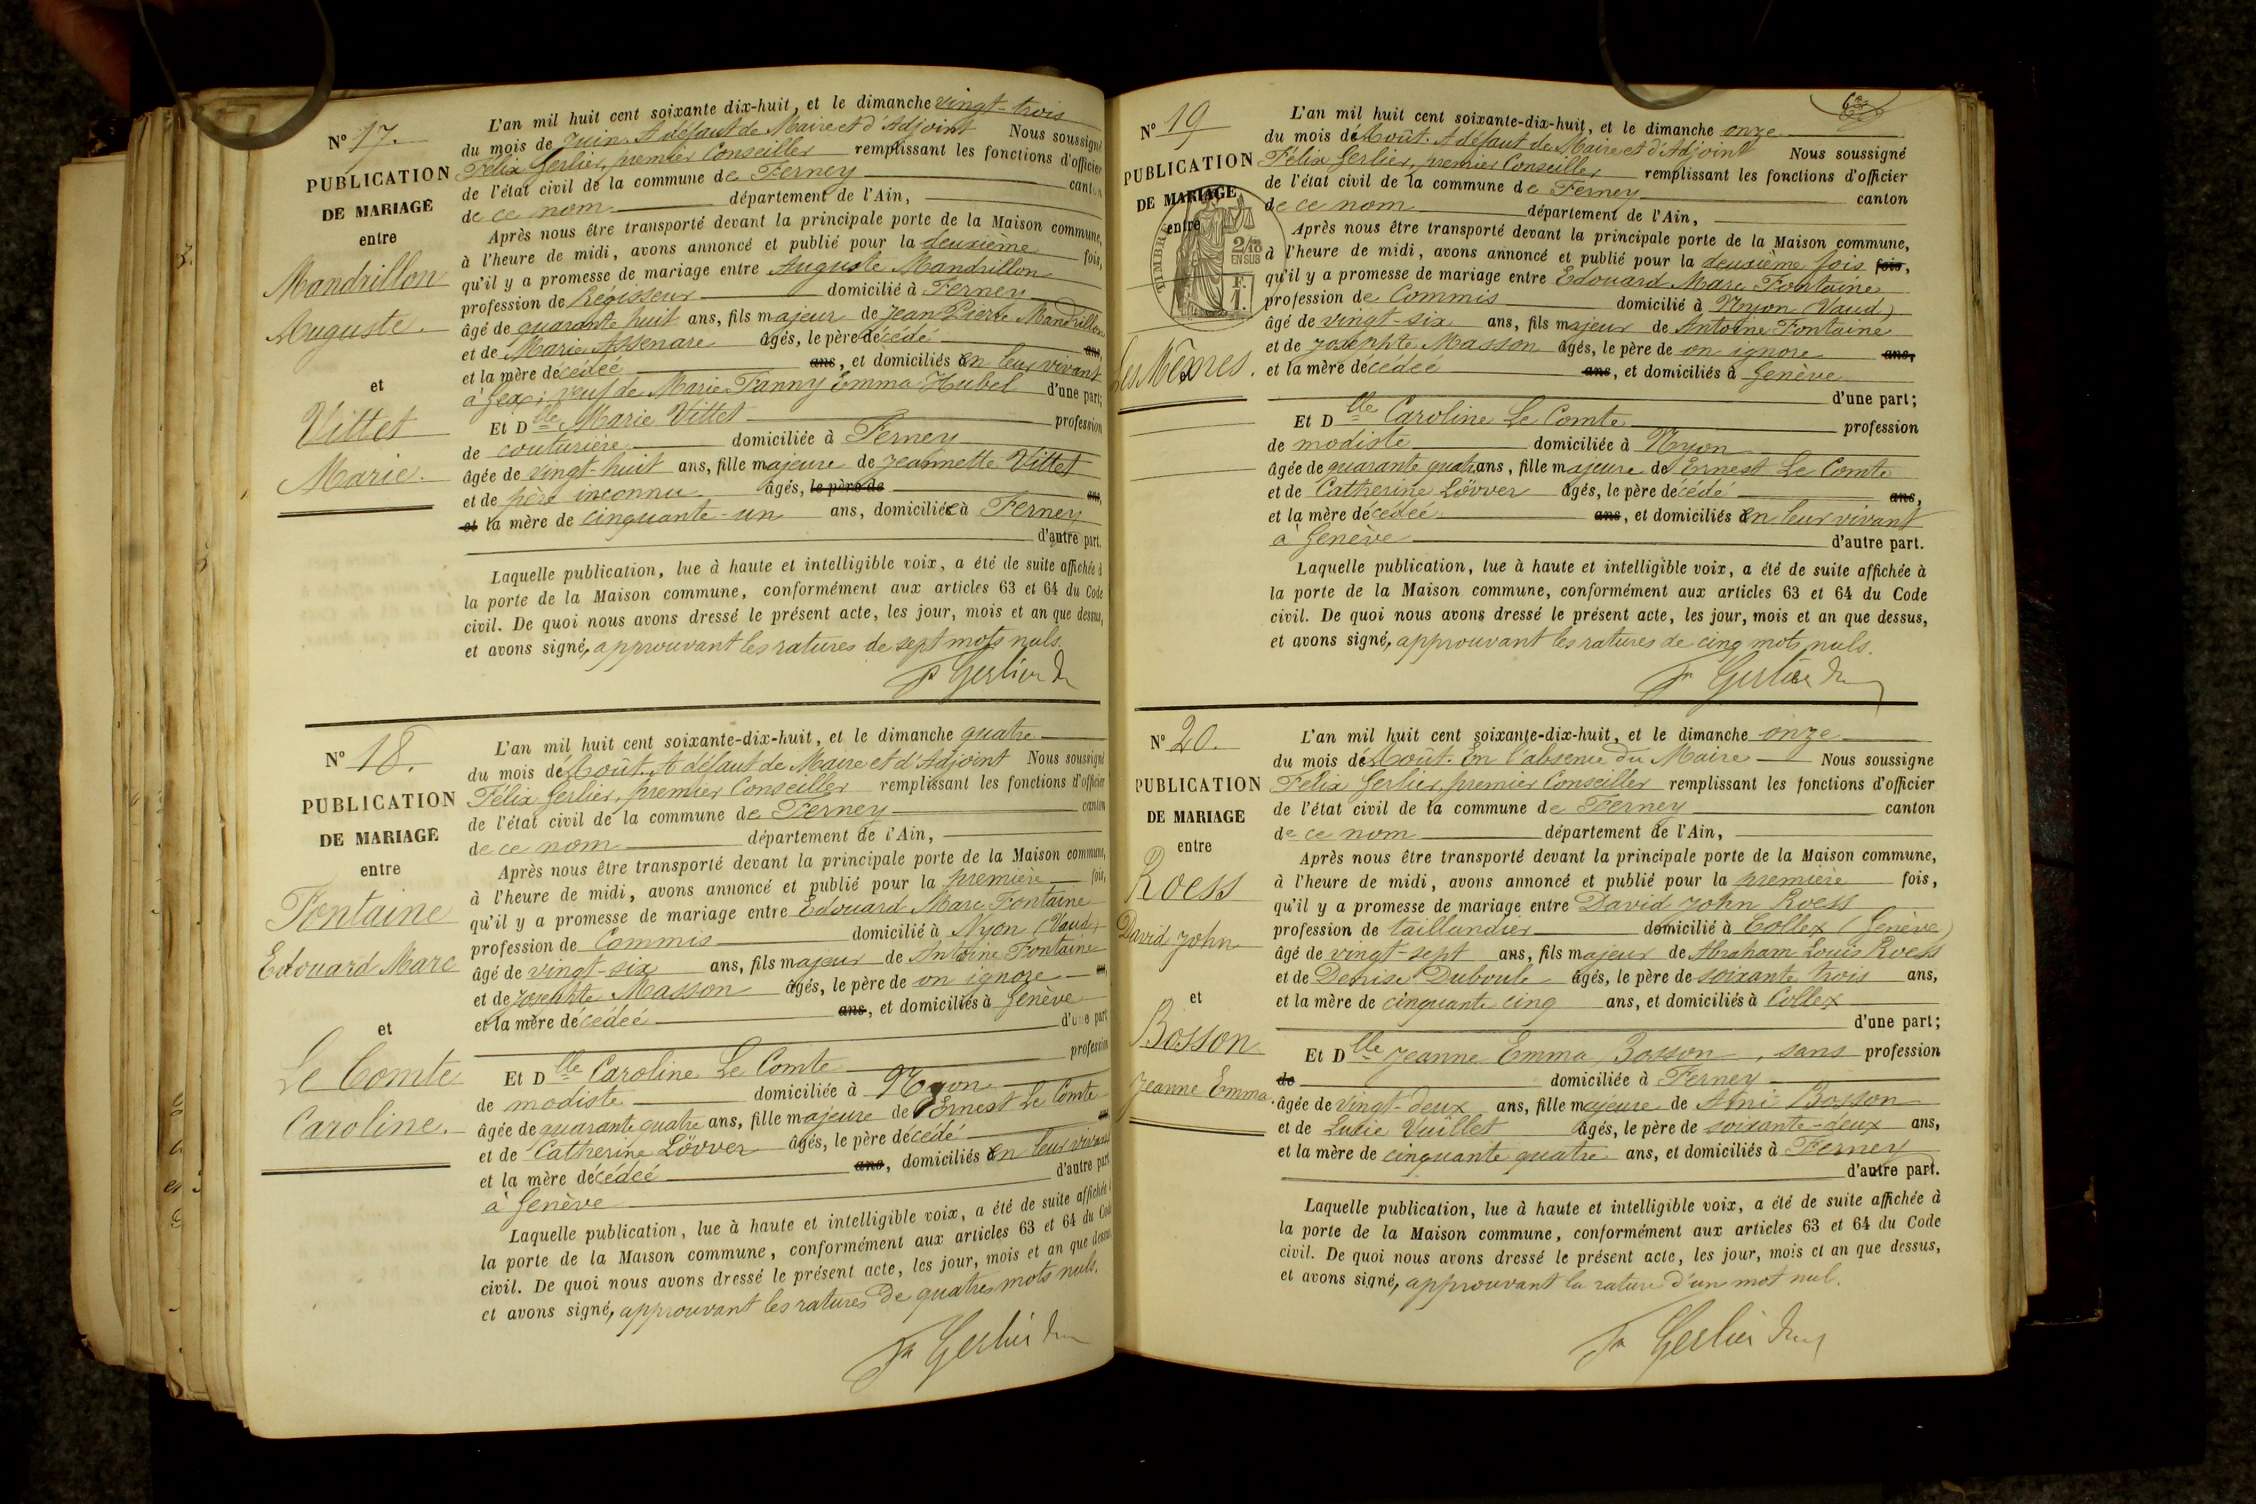 N° 17.
PUBLICATION
DE MARIAGE
entre
Mandrillon
Auguste.
et
Vittet
Marie.
L'an mil huit cent soixante dix-huit, et le dimanche vingt-trois
du mois de Juin. A défaut de Maire et d'Adjoint Nous soussigné
Félix Gerlier, premier Conseiller remplissant les fonctions d'officier
de l'état civil de la commune de Ferney canton
de ce nom département de l'Ain,
Après nous être transporté devant la principale porte de la Maison commune,
à l'heure de midi, avons annoncé et publié pour la deuxième fois,
qu'il y a promesse de mariage entre Auguste Mandrillon
profession de Régisseur domicilié à Ferney
âgé de quarante huit ans, fils majeur de Jean Pierre Mandrillon
et de Marie Assenare âgés, le père décédé ans,
et la mère décédée ans, et domiciliés en leur vivant
à Gex; veuf de Marie Fanny Emma Hubel d'une part;
Et Dlle Marie Vittet profession
de couturière domiciliée à Ferney
âgée de vingt-huit ans, fille majeure de Jeannette Vittet
et de père inconnu âgés, le père de ans,
et la mère de cinquante-un ans, domiciliée à Ferney
d'autre part.
Laquelle publication, lue à haute et intelligible voix, a été de suite affichée à
la porte de la Maison commune, conformément aux articles 63 et 64 du Code
civil. De quoi nous avons dressé le présent acte, les jour, mois et an que dessus,
et avons signé, approuvant les ratures de sept mots nuls.
Fx Gerlier
N° 18.
PUBLICATION
DE MARIAGE
entre
Fontaine
Edouard Marc
et
Le Comte
Caroline.
L'an mil huit cent soixante-dix-huit, et le dimanche quatre
du mois de Août. A défaut de Maire et d'Adjoint Nous soussigné
Félix Gerlier, premier Conseiller remplissant les fonctions d'officier
de l'état civil de la commune de Ferney canton
de ce nom département de l'Ain,
Après nous être transporté devant la principale porte de la Maison commune,
à l'heure de midi, avons annoncé et publié pour la première fois,
qu'il y a promesse de mariage entre Edouard Marc Fontaine
profession de Commis domicilié à Nyon (Vaud)
âgé de vingt-six ans, fils majeur de Antoine Fontaine
et de Josephte Masson âgés, le père de on ignore ans,
et la mère décédée ans, et domiciliés à Genève
d'une part
Et Dlle Caroline Le Comte profession
de modiste domiciliée à Nyon
âgée de quarante quatre ans, fille majeure de Ernest Le Comte
et de Catherine Lövver âgés, le père décédé ans
et la mère décédée ans, domiciliés en leur vivant
à Genève d'autre part
Laquelle publication, lue à haute et intelligible voix, a été de suite affichée à
la porte de la Maison commune, conformément aux articles 63 et 64 du Code
civil. De quoi nous avons dressé le présent acte, les jour, mois et an que dessus,
et avons signé, approuvant les ratures de quatre mots nuls.
Fx Gerlier
N° 19
PUBLICATION
DE MARIAGE
entre
TIMBRE
2/10
EN SUS
F.
1.
Les Mêmes.
et
L'an mil huit cent soixante-dix-huit, et le dimanche onze
du mois de Août. A défaut de Maire et d'Adjoint Nous soussigné
Félix Gerlier, premier Conseiller remplissant les fonctions d'officier
de l'état civil de la commune de Ferney canton
de ce nom département de l'Ain,
Après nous être transporté devant la principale porte de la Maison commune,
à l'heure de midi, avons annoncé et publié pour la deuxième fois fois,
qu'il y a promesse de mariage entre Edouard Marc Fontaine
profession de Commis domicilié à Nyon (Vaud)
âgé de vingt-six ans, fils majeur de Antoine Fontaine
et de Josephte Masson âgés, le père de on ignore ans,
et la mère décédée ans, et domiciliés à Genève
d'une part;
Et Dlle Caroline Le Comte profession
de modiste domiciliée à Nyon
âgée de quarante quatre ans, fille majeure de Ernest Le Comte
et de Catherine Lövver âgés, le père décédé ans,
et la mère décédée ans, et domiciliés en leur vivant
à Genève d'autre part.
Laquelle publication, lue à haute et intelligible voix, a été de suite affichée à
la porte de la Maison commune, conformément aux articles 63 et 64 du Code
civil. De quoi nous avons dressé le présent acte, les jour, mois et an que dessus,
et avons signé, approuvant les ratures de cinq mots nuls.
Fx Gerlier
N° 20.
PUBLICATION
DE MARIAGE
entre
Roess
David John
et
Bosson
Jeanne Emma.
L'an mil huit cent soixante-dix-huit, et le dimanche onze
du mois de Août. En l'absence du Maire Nous soussigne
Félix Gerlier, premier Conseiller remplissant les fonctions d'officier
de l'état civil de la commune de Ferney canton
de ce nom département de l'Ain,
Après nous être transporté devant la principale porte de la Maison commune,
à l'heure de midi, avons annoncé et publié pour la première fois,
qu'il y a promesse de mariage entre David John Roess
profession de taillandier domicilié à Collex (Genève)
âgé de vingt-sept ans, fils majeur de Abraham Louis Roess
et de Denise Duboule âgés, le père de soixante trois ans,
et la mère de cinquante cinq ans, et domiciliés à Collex
d'une part;
Et Dlle Jeanne Emma Bosson, sans profession
de domiciliée à Ferney
âgée de vingt-deux ans, fille majeure de Ami Bosson
et de Lucie Vuillet âgés, le père de soixante-deux ans,
et la mère de cinquante quatre ans, et domiciliés à Ferney
d'autre part.
Laquelle publication, lue à haute et intelligible voix, a été de suite affichée à
la porte de la Maison commune, conformément aux articles 63 et 64 du Code
civil. De quoi nous avons dressé le présent acte, les jour, mois et an que dessus,
et avons signé, approuvant la rature d'un mot nul.
Fx Gerlier